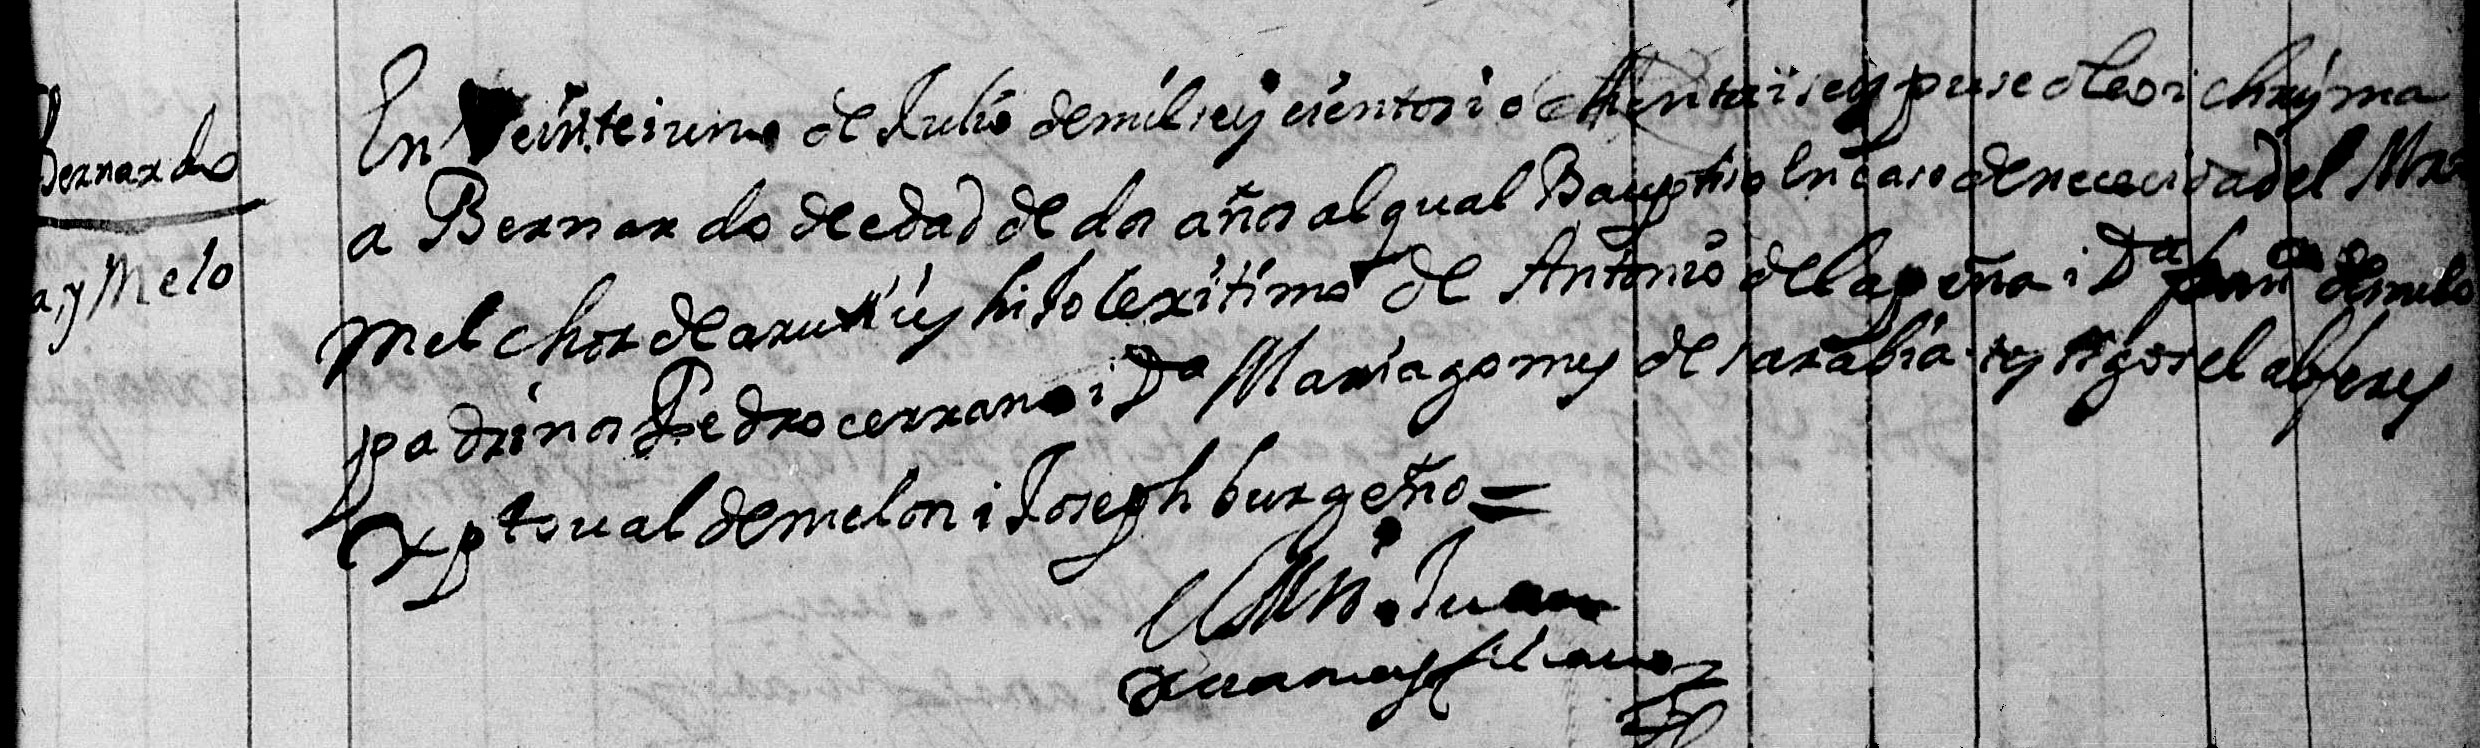 Bernardo
a, y Melo
En Veinte i uno de Julio de mil seis cientos i ochenta i seis puse oleo i chrisma
a Bernardo de edad de dos años al qual Baptiso en caso de nececidad el Mro
Melchor de hijo lexitimo de Antonio de la peña i Da de melo
padrinos Pedro cerrano i Da Maria gomes de sarabia testigos el alferes
Xptoual de melo i Joseph burgeño =
el Mro. Juan